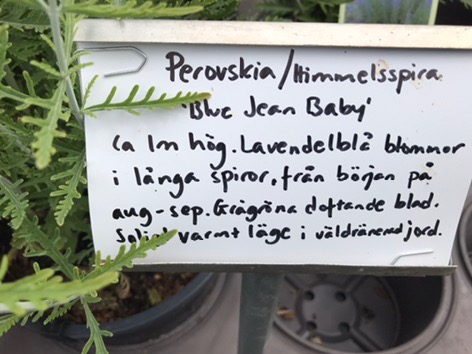 Perovskia/Himmelsspira
'Blue Jean Baby'
Ca 1m hög. Lavendelblå blommor
i långa spiror, från början på
aug-sep. Grågröna doftande blad.
Soligt varmt läge i väldränerad jord.